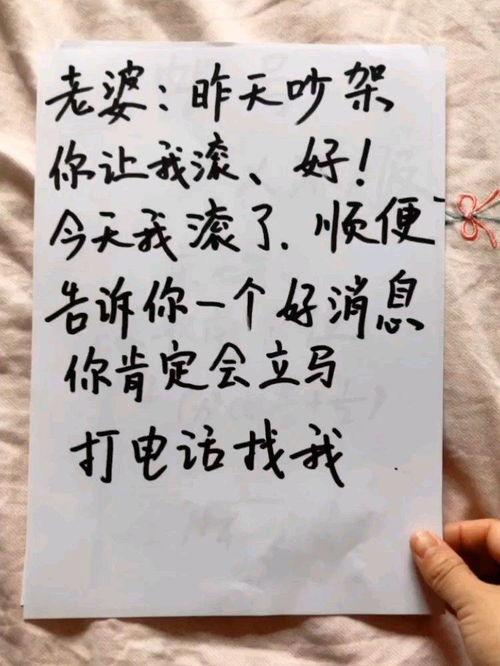 老婆：昨天吵架
你让我滚、好！
今天我滚了.顺便
告诉你一个好消息
你肯定会立马
打电话找我